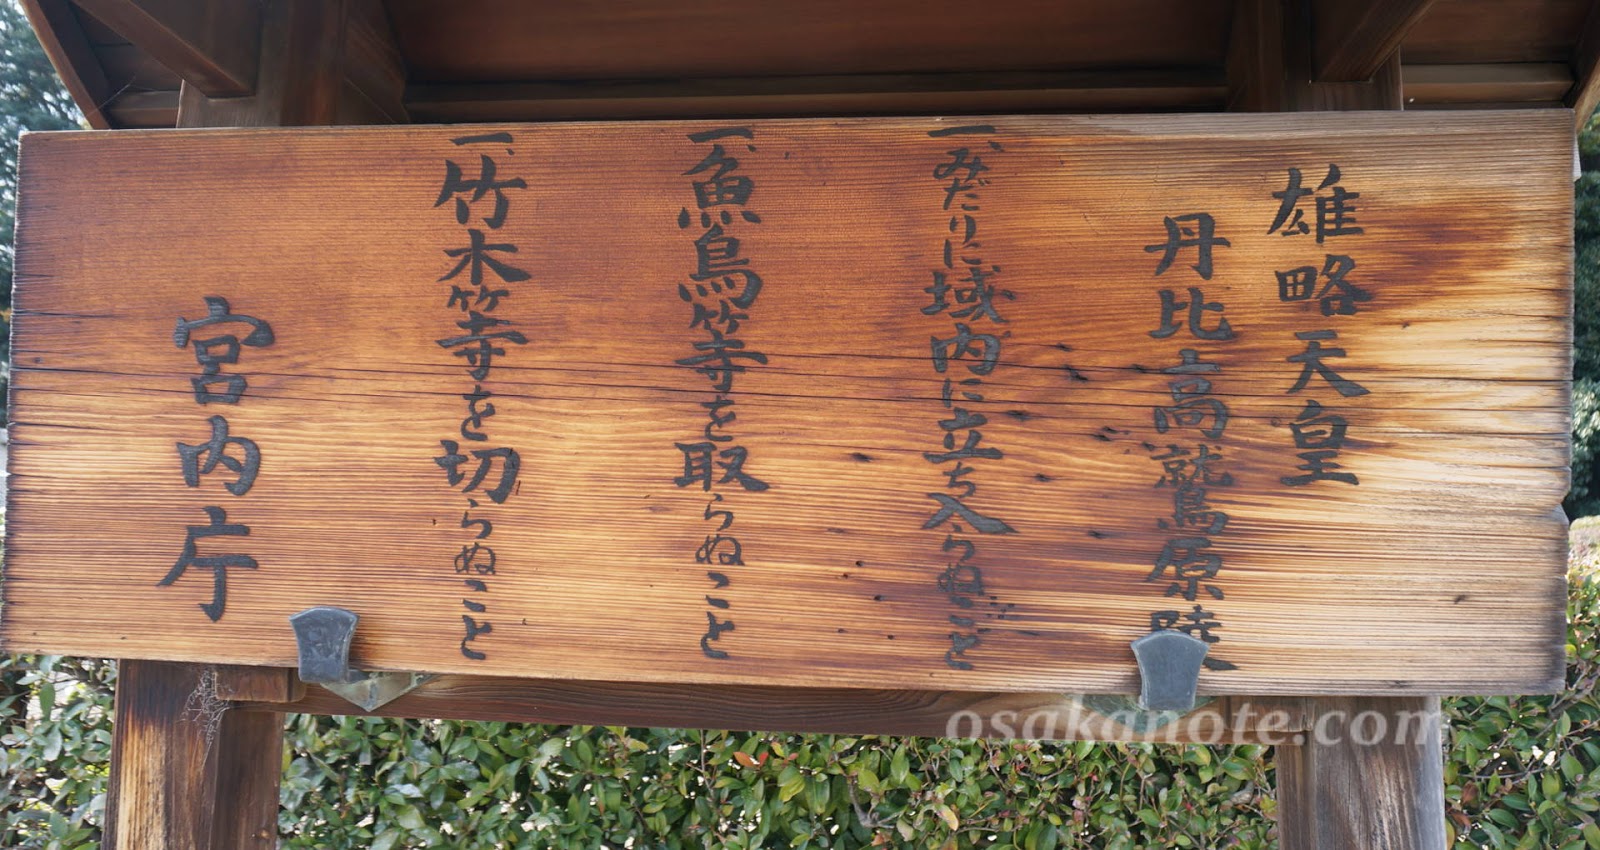 雄略天皇
丹比高鷲原陵
一、みだりに域内に立ち入らぬこと
一、魚鳥等を取らぬこと
一、竹木等を切らぬこと
宮内庁
osakanote.com